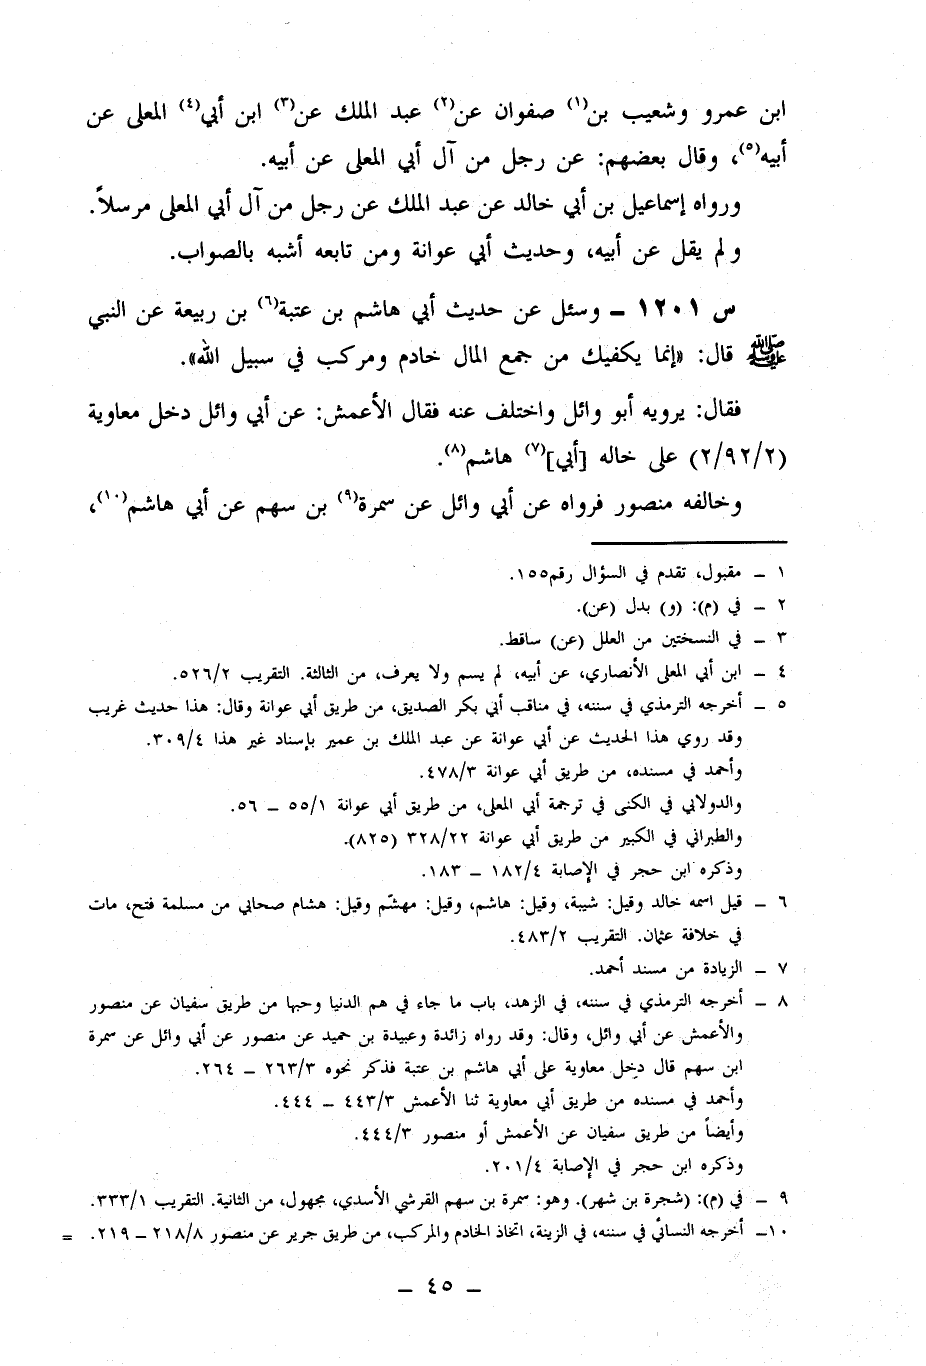 ابن عمرو وشعيب بن(١) صفوان عن(٢) عبد الملك عن(٣) ابن أبي(٤) المعلى عن
أبيه(٥)، وقال بعضهم: عن رجل من آل أبي المعلى عن أبيه.
ورواه إسماعيل بن أبي خالد عن عبد الملك عن رجل من آل أبي المعلى مرسلاً.
ولم يقل عن أبيه، وحديث أبي عوانة ومن تابعه أشبه بالصواب.
س ١٢٠١ – وسئل عن حديث أبي هاشم بن عتبة(٦) بن ربيعة عن النبي
ﷺ قال: «إنما يكفيك من جمع المال خادم ومركب في سبيل الله».
فقال: يرويه أبو وائل واختلف عنه فقال الأعمش: عن أبي وائل دخل معاوية
(٢/٩٢/٢) على خاله [أبي](٧) هاشم(٨).
وخالفه منصور فرواه عن أبي وائل عن سمرة(٩) بن سهم عن أبي هاشم(١٠)،
١ – مقبول، تقدم في السؤال رقم١٥٥.
٢ – في (م): (و) بدل (عن).
٣ – في النسختين من العلل (عن) ساقط.
٤ – ابن أبي المعلى الأنصاري، عن أبيه، لم يسم ولا يعرف، من الثالثة. التقريب ٥٢٦/٢.
٥ – أخرجه الترمذي في سننه، في مناقب أبي بكر الصديق، من طريق أبي عوانة وقال: هذا حديث غريب
وقد روي هذا الحديث عن أبي عوانة عن عبد الملك بن عمير بإسناد غير هذا ٣٠٩/٤.
وأحمد في مسنده، من طريق أبي عوانة ٤٧٨/٣.
والدولابي في الكنى في ترجمة أبي المعلى، من طريق أبي عوانة ٥٥/١ – ٥٦.
والطبراني في الكبير من طريق أبي عوانة ٣٢٨/٢٢ (٨٢٥).
وذكره ابن حجر في الإصابة ١٨٢/٤ – ١٨٣.
٦ – قيل اسمه خالد وقيل: شيبة، وقيل: هاشم، وقيل: مهشّم وقيل: هشام صحابي من مسلمة فتح، مات
في خلافة عثمان. التقريب ٤٨٣/٢.
٧ – الزيادة من مسند أحمد.
٨ – أخرجه الترمذي في سننه، في الزهد، باب ما جاء في هم الدنيا وحبها من طريق سفيان عن منصور
والأعمش عن أبي وائل، وقال: وقد رواه زائدة وعبيدة بن حميد عن منصور عن أبي وائل عن سمرة
ابن سهم قال دخل معاوية على أبي هاشم بن عتبة فذكر نحوه ٢٦٣/٣ – ٢٦٤.
وأحمد في مسنده من طريق أبي معاوية ثنا الأعمش ٤٤٣/٣ – ٤٤٤.
وأيضاً من طريق سفيان عن الأعمش أو منصور ٤٤٤/٣.
وذكره ابن حجر في الإصابة ٢٠١/٤.
٩ – في (م): (شجرة بن شهر). وهو: سمرة بن سهم القرشي الأسدي، مجهول، من الثانية. التقريب ٣٣٣/١.
١٠– أخرجه النسائي في سننه، في الزينة، اتخاذ الخادم والمركب، من طريق جرير عن منصور ٢١٨/٨ – ٢١٩. =
– ٤٥ –